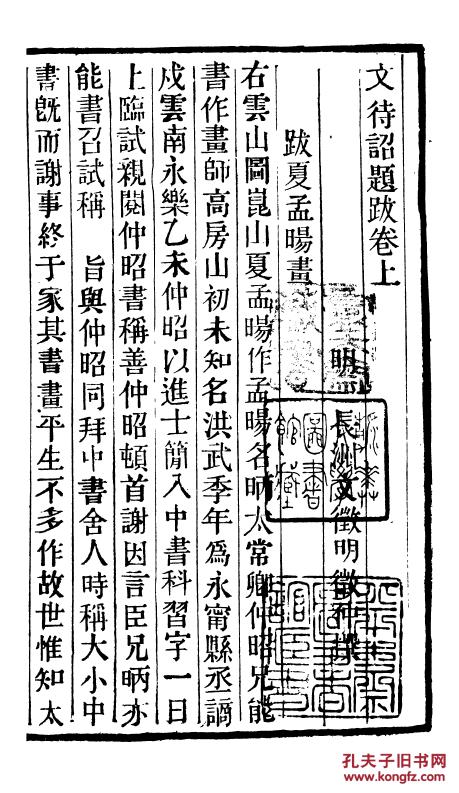 文待詔題跋卷上
明 長洲文徵明徵仲撰
跋夏孟暘畫
右雲山圖崑山夏孟暘作孟暘名昞太常卿仲昭兄能
書作畫師高房山初未知名洪武季年為永甯縣丞謫
戍雲南永樂乙未仲昭以進士簡入中書科習字一日
上臨試親閱仲昭書稱善仲昭頓首謝因言臣兄昞亦
能書召試稱 旨與仲昭同拜中書舍人時稱大小中
書旣而謝事終于家其書畫平生不多作故世惟知太
孔夫子旧书网
www.kongfz.com